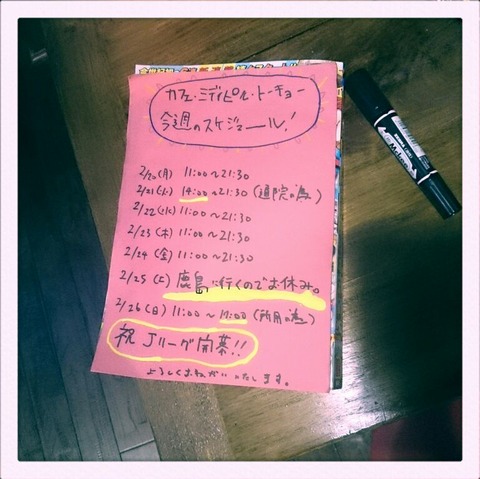 カフェ・ミディピル・トーキョー
今週のスケジュール!
2/20(月) 11:00〜21:30
2/21(火) 14:00〜21:30(通院の為)
2/22(水) 11:00〜21:30
2/23(木) 11:00〜21:30
2/24(金) 11:00〜21:30
2/25(土) 鹿島に行くのでお休み。
2/26(日) 11:00〜17:00(所用の為)
祝 Jリーグ開幕!!
よろしくおねがいいたします。